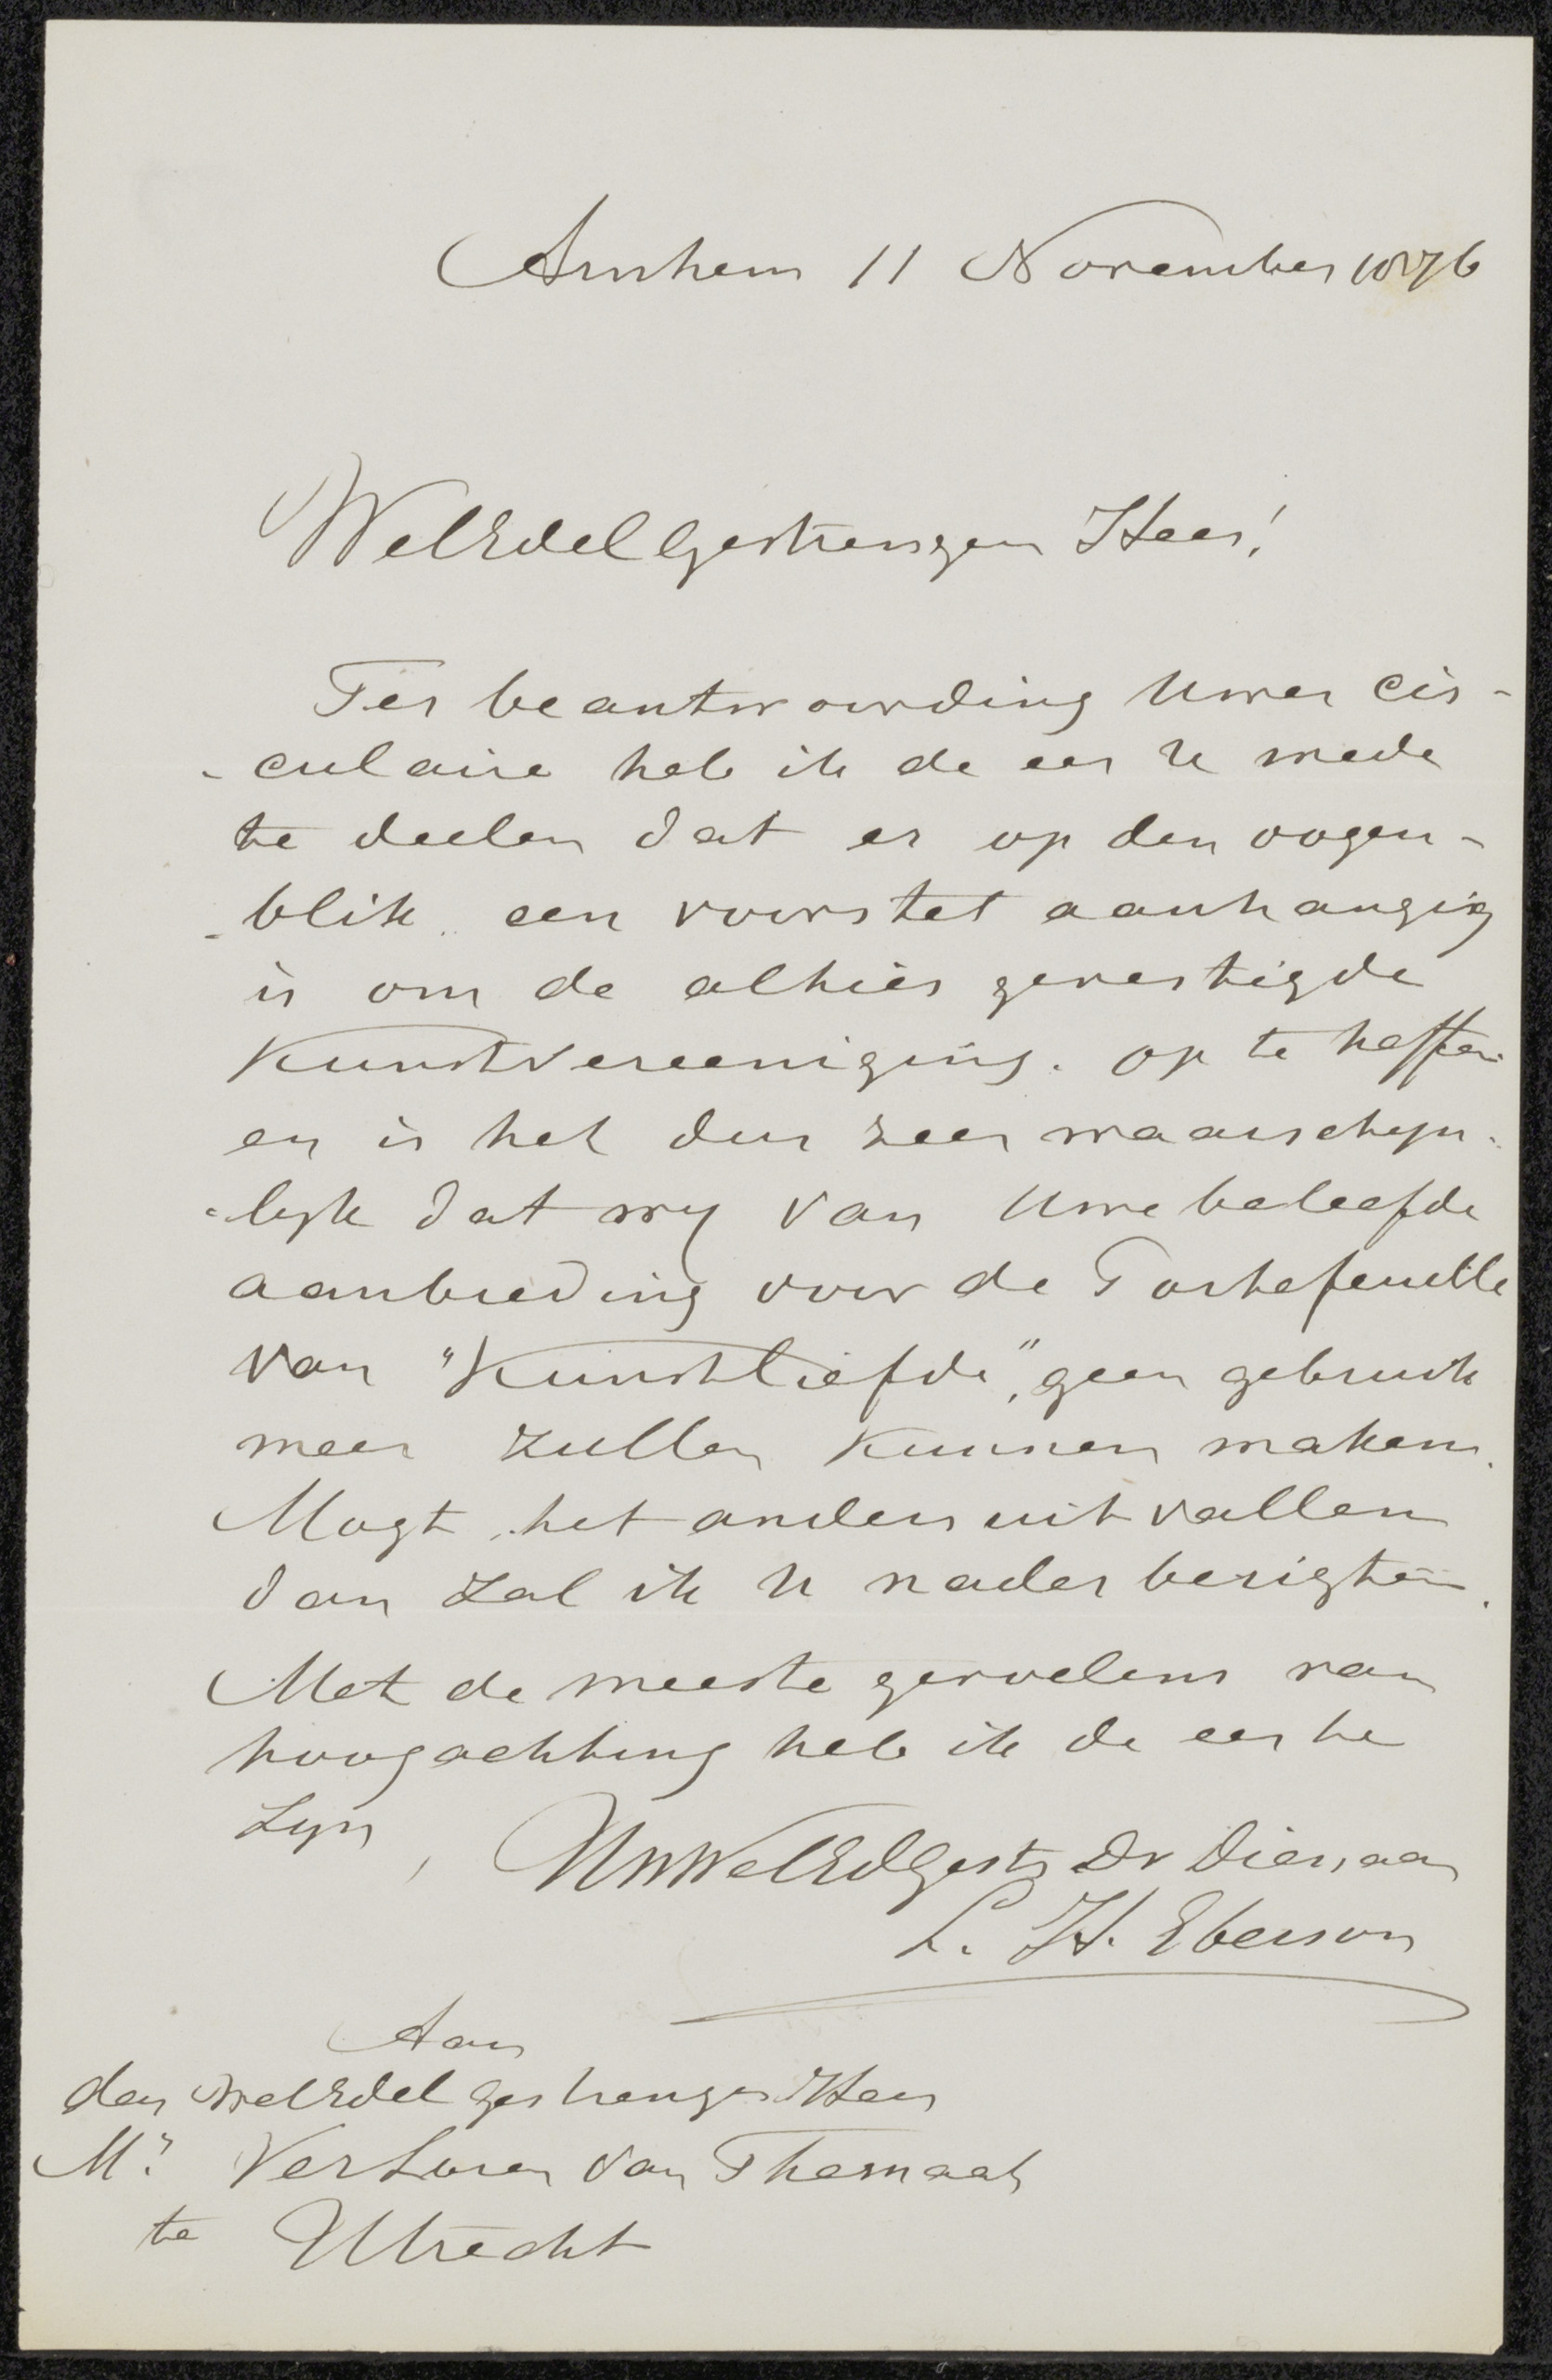 Arnhem 11 November 1876
WelEdelGestrengen Heer!
Ter beantwoording Uwer cir-
-culaire heb ik de eer U mede
te deelen dat er op den oogen-
-blik een voorstel aanhangig
is om de alhier gevestigde
Kunstvereeniging. op te heffen
en is het dus zeer waarschyn-
-lyk dat wy van Uwe beleefde
aanbieding voor de Portefeuille
van "Kunstliefde", geen gebruik
meer zullen kunnen maken.
Mogt het anders uitvallen
dan zal ik U nader berigten.
Met de meeste gevoelens van
hoogachting heb ik de eer te
zyn,
UwWelEdGestr Dv Dienaar
L. H. Eberson
Aan
den WelEdelGestrengen Heer
Mr. VerLoren van Themaat
te Utrecht